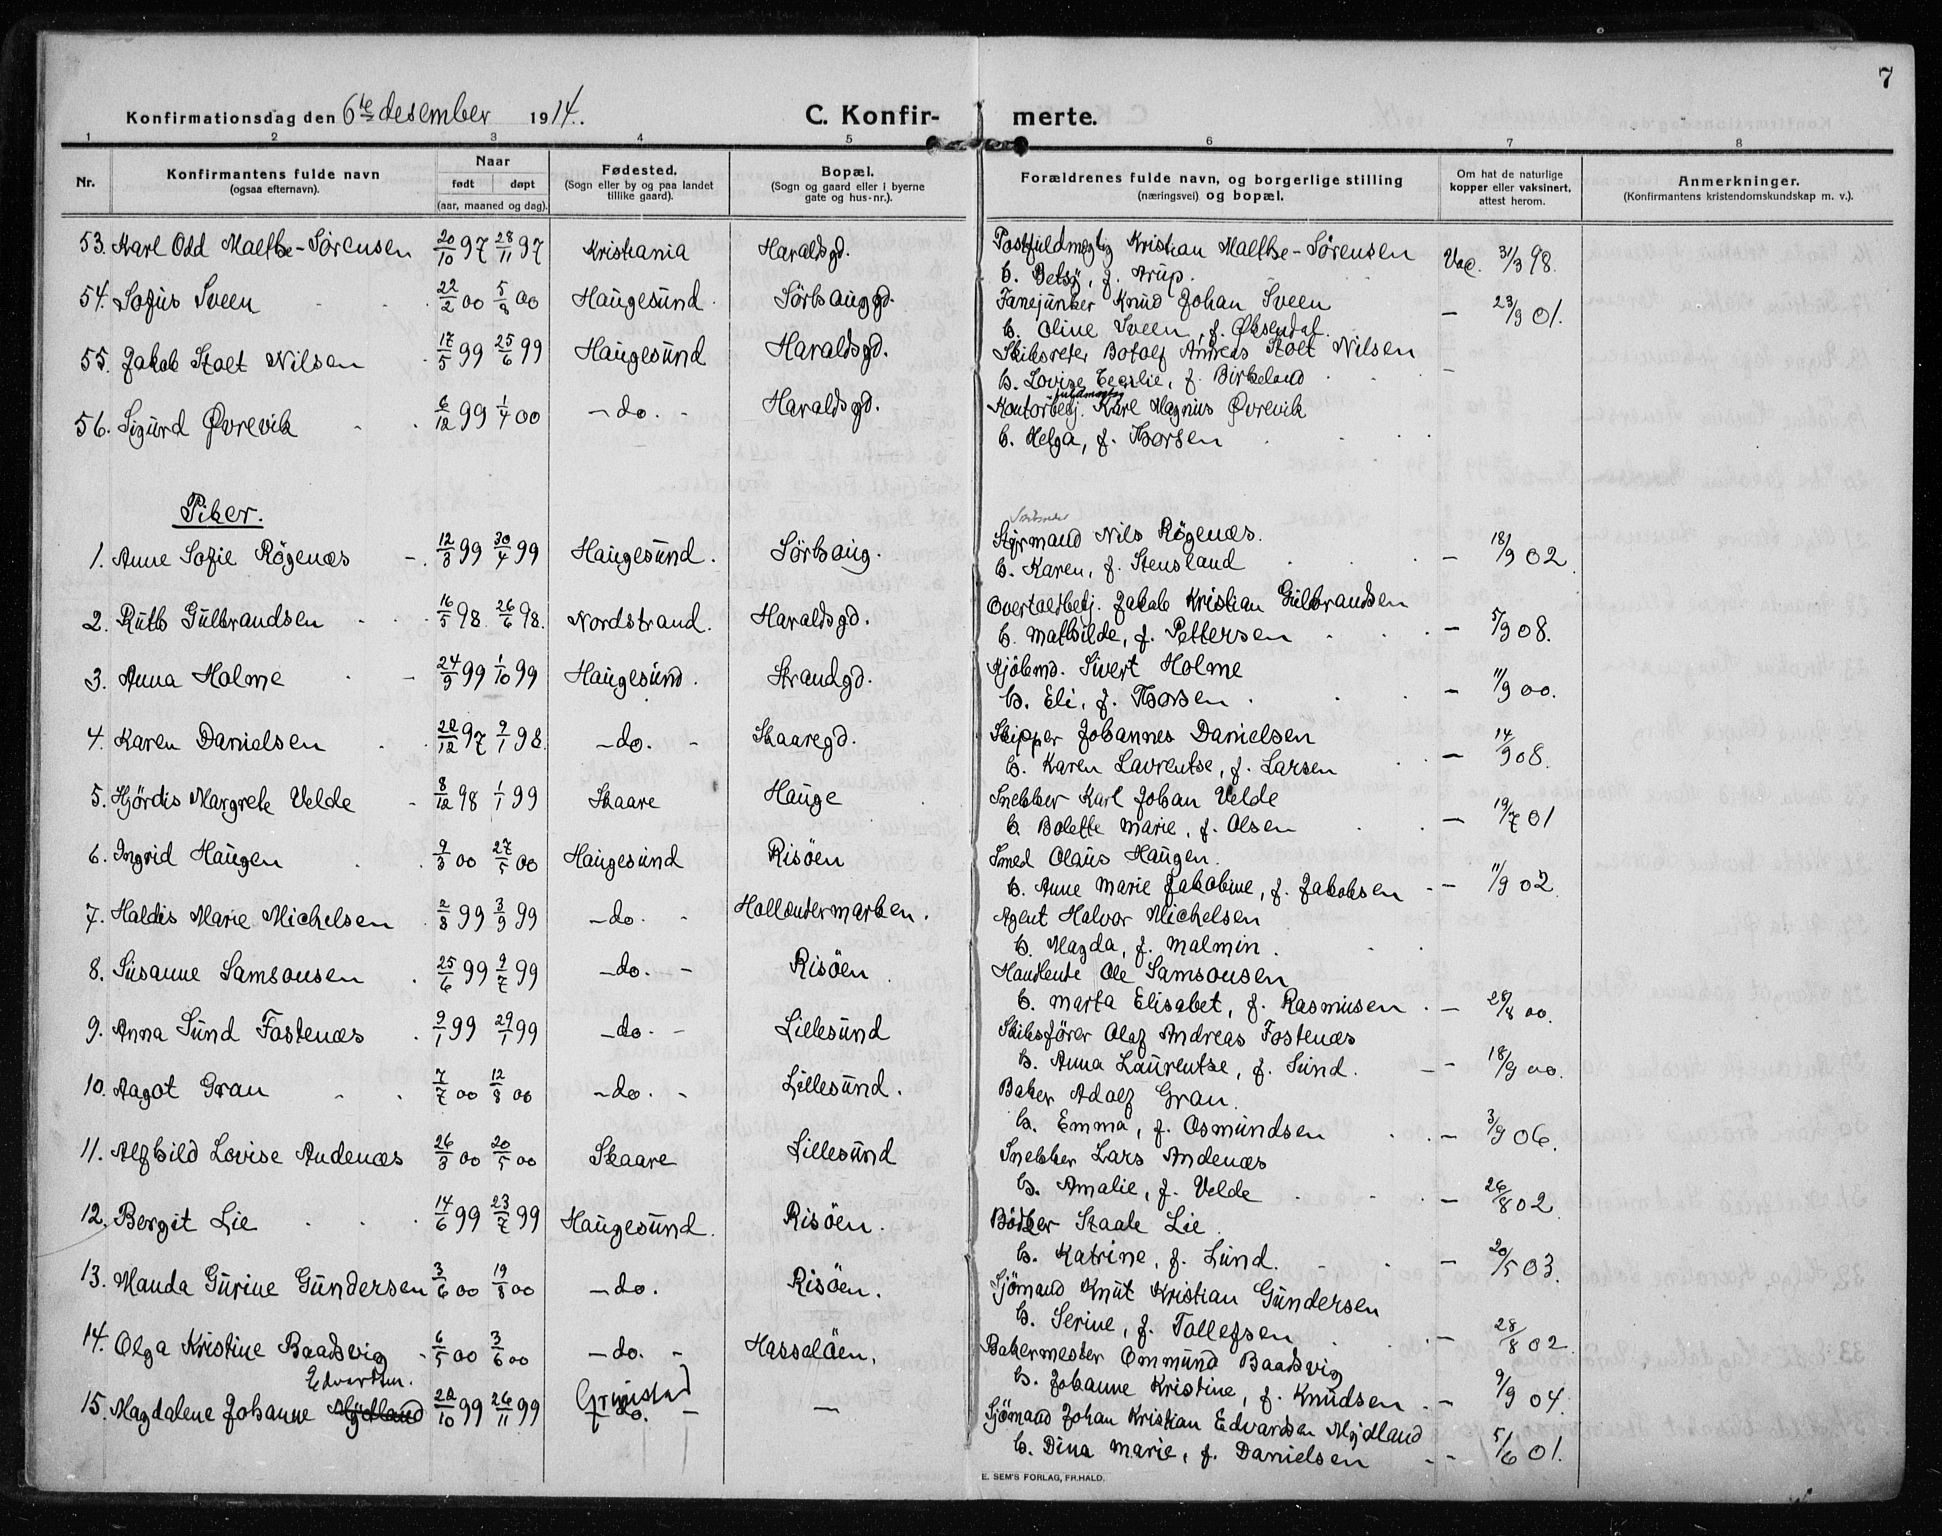 7
Konfirmationsdag den 6te desember 1914.
C. Konfir- merte.
1 2 3 4 5 6 7 8
Nr.
Konfirmantens fulde navn
(ogsaa efternavn).
Naar
født døpt
(aar, maaned og dag).
Fødested.
(Sogn eller by og paa landet
tillike gaard).
Bopæl.
(Sogn og gaard eller i byerne
gate og hus-nr.).
Forældrenes fulde navn, og borgerlige stilling
(næringsvei) og bopæl.
Om hat de naturlige
kopper eller vaksinert,
attest herom.
Anmerkninger.
(Konfirmantens kristendomskundskap m. v.).
53. Karl Odd Malthe-Sörensen 20/10 97 28/11 97 Kristiania Haraldsgd. Postfuldmegtig Kristian Malthe-Sörensen Vac. 31/3 98.
h. Betsy, f. Arup.
54. Sofus Sveen 22/2 00 5/8 00 Haugesund. Sörhauggd. Fanejunker Knud Johan Sveen – 23/9 01.
h. Oline Sveen, f. Øksendal.
55. Jakob Stolt Nilsen 17/5 99 25/6 99 Haugesund Haraldsgd. Skibsreder Botolf Andreas Stolt Nilsen –
h. Lovise Cecilie, f. Birkeland
56. Sigurd Øvrevik 6/12 99 1/4 00 – do. – Haraldsgd. Kontorbetj. fuldmegtig Karl Magnus Øvrevik
h. Helga, f. Thorsen
Piker.
1. Anne Sofie Rögenæs 12/3 99 30/4 99 Haugesund. Sörhaug. Styrmand Nils Rögenæs.
h. Karen, f. Stensland – 18/9 02
2. Ruth Gulbrandsen 16/5 98. 26/6 98. Nordstrand. Haraldsgd. Overtoldbetj. Jakob Kristian Gulbrandsen
h. Mathilde, f. Pettersen – 5/9 08.
3. Anna Holme 24/9 99 1/10 99 Haugesund. Strandgd. Kjöbmd. Sivert Holme
h. Eli, f. Thorsen – 11/9 00.
4. Karen Danielsen 22/12 97 9/1 98. – do. – Skaaregd. Skipper Johannes Danielsen
h. Karen Lavrentse, f. Larsen – 14/9 08.
5. Hjördis Margrete Velde 8/12 98 1/1 99 Skaare Hauge Snekker Karl Johan Velde
h. Bolette Marie, f. Olsen – 19/7 01
6. Ingrid Haugen 9/3 00 27/5 00 Haugesund Risöen Smed Olaus Haugen.
h. Anne Marie Jakobine, f. Jakobsen – 11/9 02
7. Haldis Marie Michelsen 2/8 99 3/9 99 – do. – Hollendermarken. Agent Halvor Michelsen
h. Magda, f. Malmin.
8. Susanne Samsonsen 25/6 99 9/7 99 – do. – Risöen Ole Samsonsen
h. Marta Elisabet, f. Rasmusen – 29/8 00.
9. Anna Sund Fostenæs 9/1 99 29/1 99 – do. – Lillesund Skibsförer Olaf Andreas Fostenæs
h. Anna Laurentse, f. Sund. – 18/9 00.
10. Aagot Gran 7/7 00 12/8 00 – do. – Lillesund. Baker Adolf Gran.
h. Emma, f. Osmundsen – 3/9 06.
11. Alfhild Lovise Andenæs 26/3 00 20/5 00 Skaare Lillesund Snekker Lars Andenæs
h. Amalie, f. Velde – 26/8 02
12. Bergit Lie 14/6 99 23/7 99 Haugesund. Risöen. Bödker Staale Lie
h. Katrine, f. Lund. – 20/5 03.
13. Manda Gurine Gundersen 3/6 00 19/8 00 – do. Risöen. Sjömand Knut Kristian Gundersen
h. Serine, f. Tollefsen – 28/8 02
14. Olga Kristine Baadsvig 6/5 00 3/6 00 – do. – Hasselöen. Bakermester Ommund Baadsvig
h. Johanne Kristine, f. Knudsen – 9/9 04.
Edvardsen. Grimstad
15. Magdalene Johanne Mydland 22/10 99 26/11 99 – do. – – Sjömand Johan Kristian Edvardsen Mydland
h. Dina Marie, f. Danielsen – 5/6 01.
E. SEM'S FORLAG, FR.HALD.